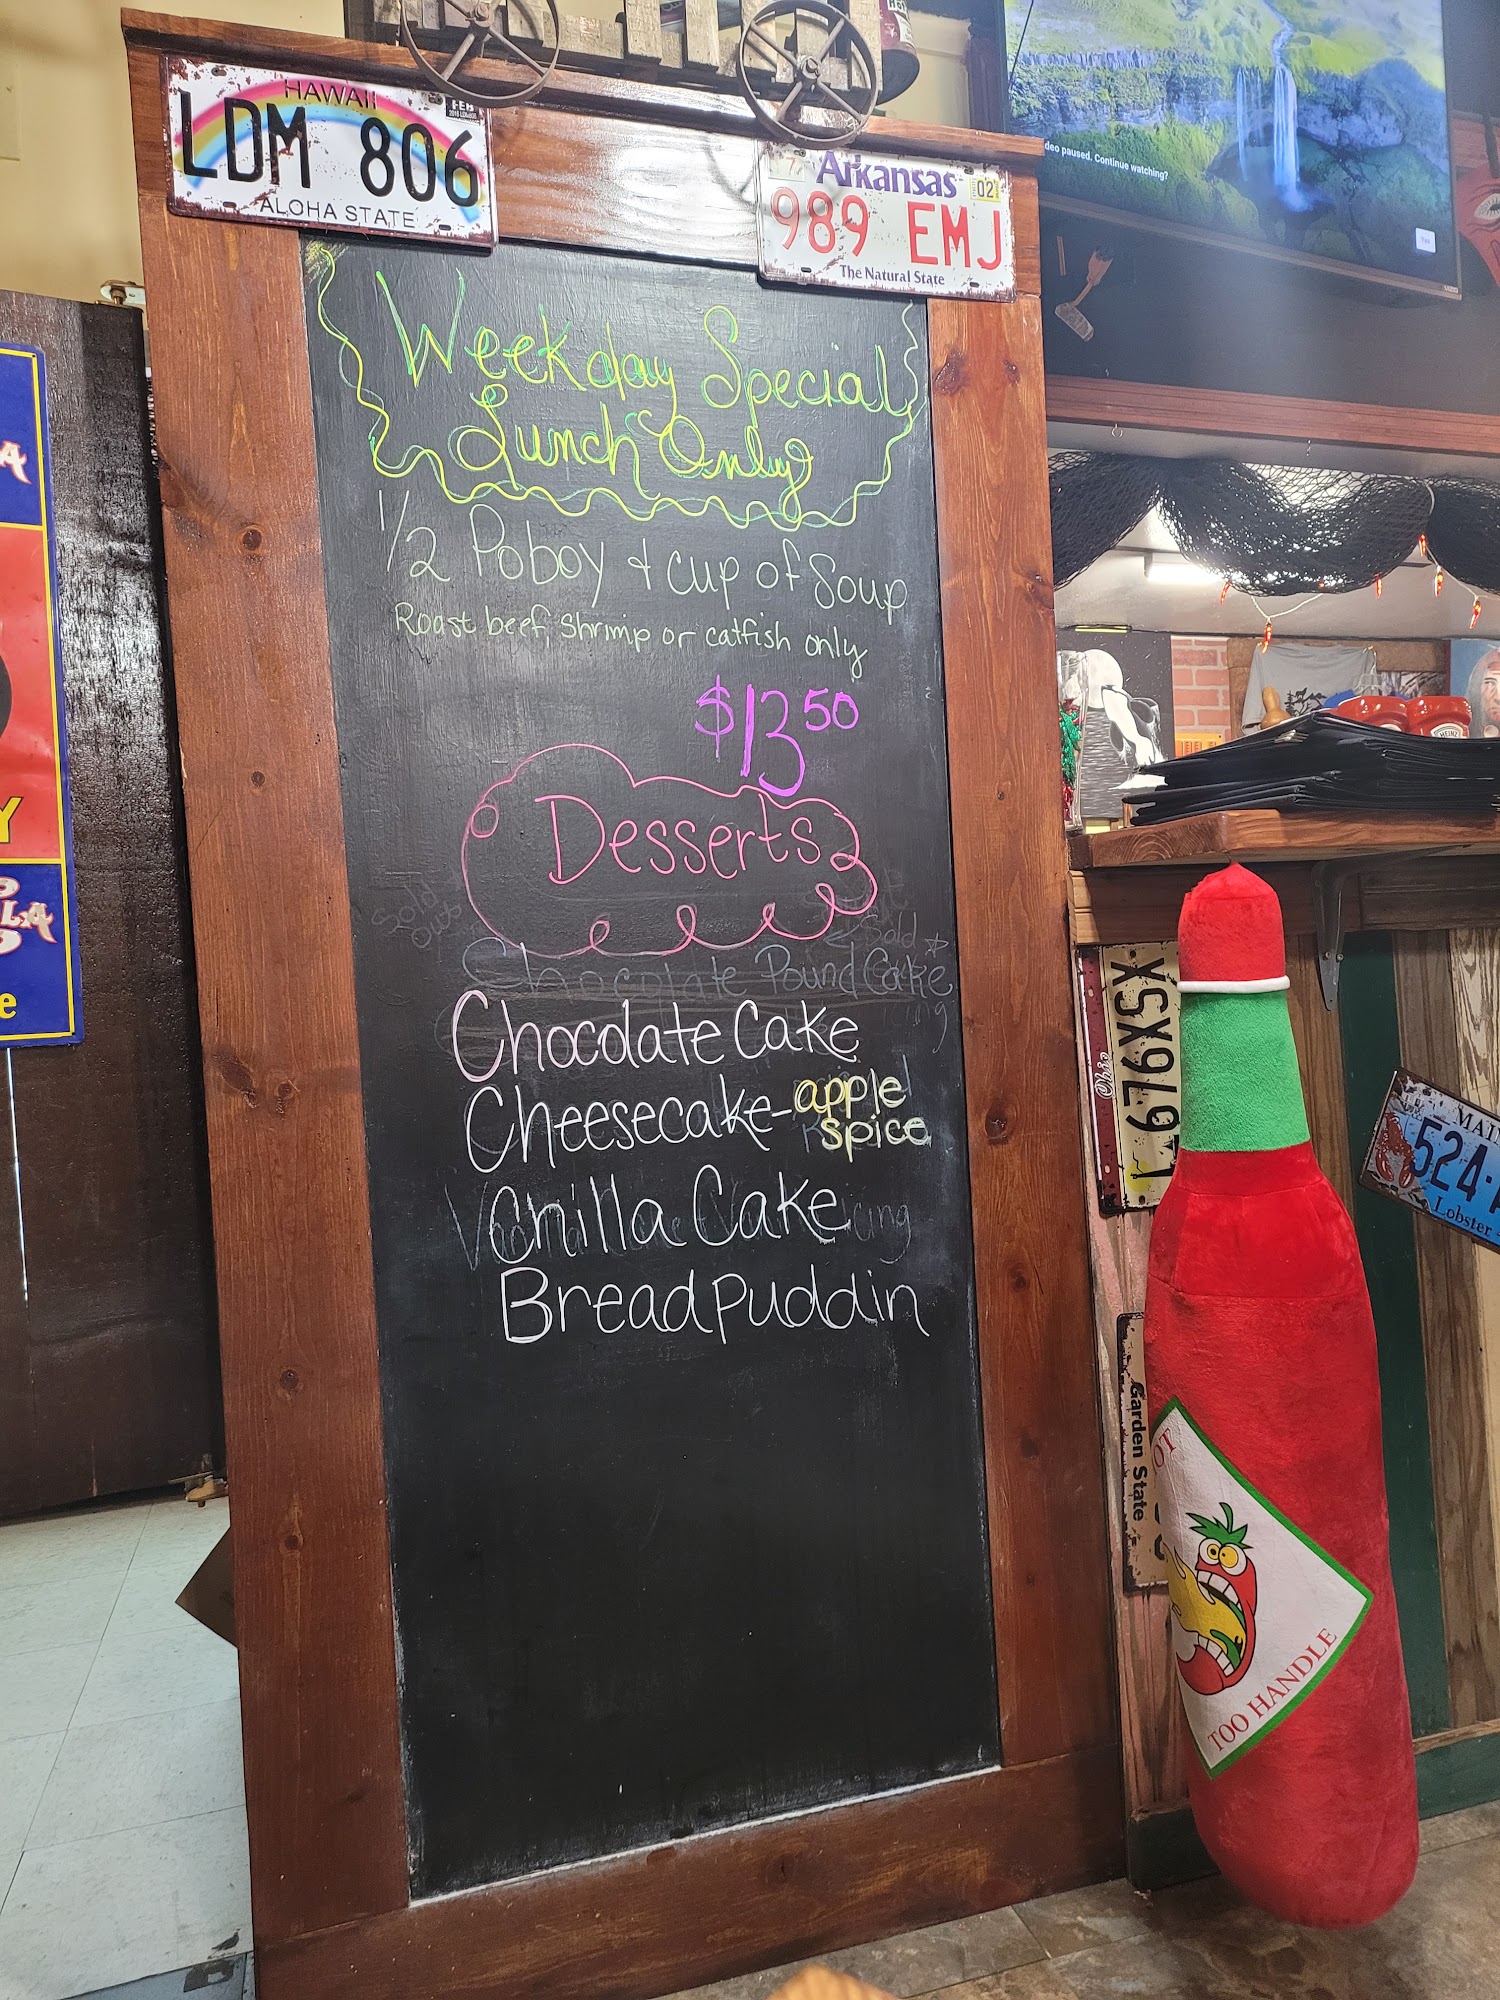 HAWAII
FEB
LDM 806
ALOHA STATE
Arkansas
02
989 EMJ
The Natural State
deo paused. Continue watching?
Yes
Weekday Special
Lunch Only
1/2 Poboy + cup of Soup
Roast beef, Shrimp or catfish only
$13.50
Desserts
Sold
Out
Sold
Chocolate Pound Cake
Chocolate Cake
Cheesecake - apple
spice
Chilla Cake
Bread puddin
A
Y
LA
e
HEINZ
Ohio
L79X5X
MAIN
524
Lobster
Garden State
OT
TOO HANDLE